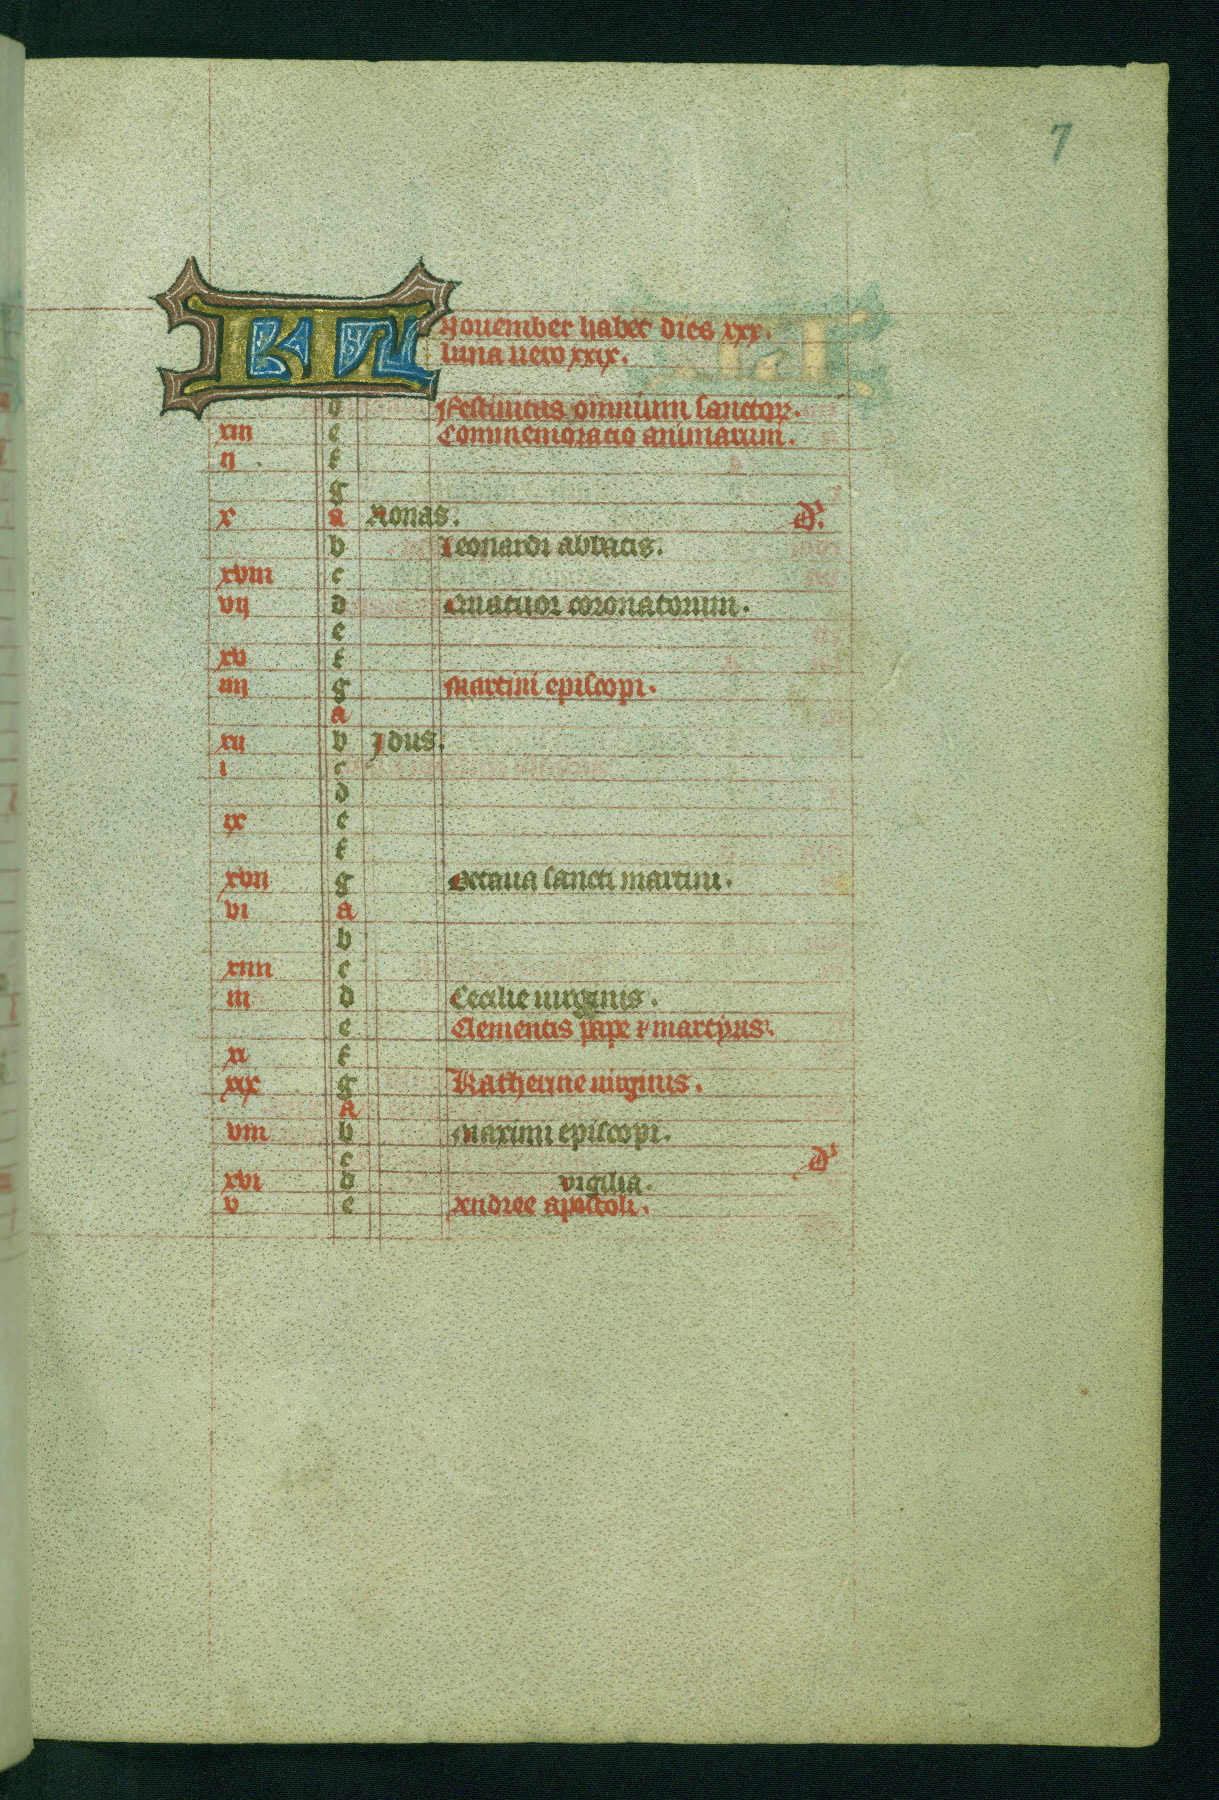 7
KL Nouember habet dies xxx.
luna uero xxix.
d Festiuitas omnium sanctoꝝ.
xiii e Commemoracio animarum.
ij f
g
x a Nonas. D'.
b Leonardi abbatis.
xviii c
vij d Quatuor coronatorum.
e
xv f
iiij g Martini episcopi.
a
xij b Jdus.
i c
d
ix e
f
xvii g Octaua sancti martini.
vi a
b
xiiii c
iii d Cecilie uirginis.
e Clementis pape ⁊ martyris.
xi f
xix g Katherine uirginis.
a
viii b Maximi episcopi.
c D'
xvi d vigilia.
v e Andree apostoli.